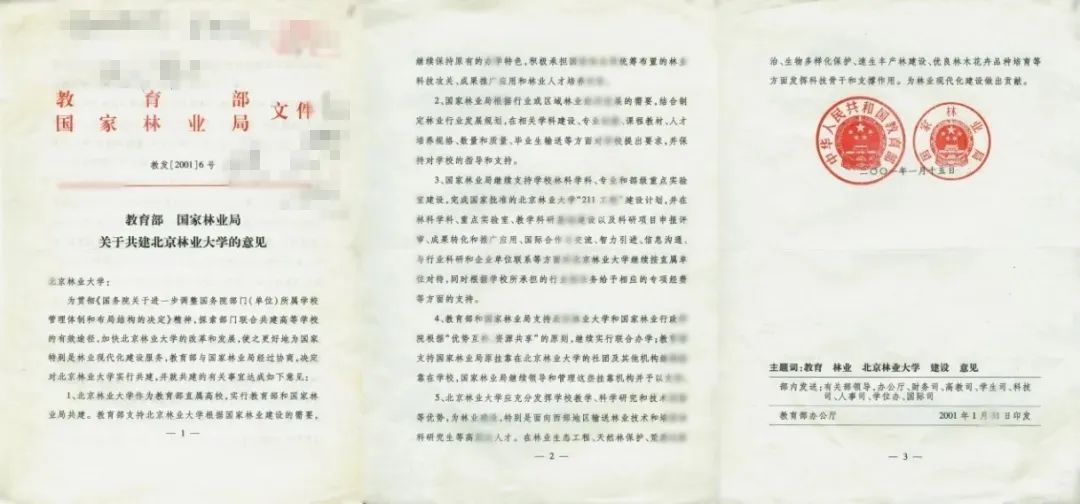 教育部
国家林业局
文件
教发[2001]6号
教育部 国家林业局
关于共建北京林业大学的意见
北京林业大学:
为贯彻《国务院关于进一步调整国务院部门(单位)所属学校
管理体制和布局结构的决定》精神,探索部门联合共建高等学校
的有效途径,加快北京林业大学的改革和发展,使之更好地为国家
特别是林业现代化建设服务,教育部与国家林业局经过协商,决定
对北京林业大学实行共建,并就共建的有关事宜达成如下意见:
1、北京林业大学作为教育部直属高校,实行教育部和国家林
业局共建。教育部支持北京林业大学根据国家林业建设的需要,
— 1 —
继续保持原有的办学特色,积极承担国 统筹布置的林业
科技攻关、成果推广应用和林业人才培养
2、国家林业局根据行业或区域林业 展的需要,结合制
定林业行业发展规划,在相关学科建设、专业 、课程教材、人才
培养规格、数量和质量、毕业生输送等方面 学校提出要求,并保
持对学校的指导和支持。
3、国家林业局继续支持学校林科学科、专业和部级重点实验
室建设,完成国家批准的北京林业大学“211工 ”建设计划,并在
林科学科、重点实验室、教学科研 建设以及科研项目申报评
审、成果转化和推广应用、国际合作 交流、智力引进、信息沟通、
与行业科研和企业单位联系等方面 北京林业大学继续按直属单
位对待,同时根据学校所承担的行 务给予相应的专项经费
等方面的支持。
4、教育部和国家林业局支持 大学和国家林业行政
院根据“优势互 、资源共享”的原则,继续实行联合办学;教
支持国家林业局原挂靠在北京林业大学的社团及其他机构
靠在学校,国家林业局继续领导和管理这些挂靠机构并予以
5、北京林业大学应充分发挥学校教学、科学研究和技术
等优势,为林业 ,特别是面向西部地区输送林业技术和
科研究生等高 人才。在林业生态工程、天然林保护、荒
— 2 —
治、生物多样化保护、速生丰产林建设、优良林木花卉品种培育等
方面发挥科技骨干和支撑作用。为林业现代化建设做出贡献。
中华人民共和国教育部
国家林业局
二〇〇一年一月十五日
主题词:教育 林业 北京林业大学 建设 意见
部内发送:有关部领导,办公厅、财务司、高教司、学生司、科技
司、人事司、学位办、国际司
教育部办公厅 2001年1月 日印发
— 3 —